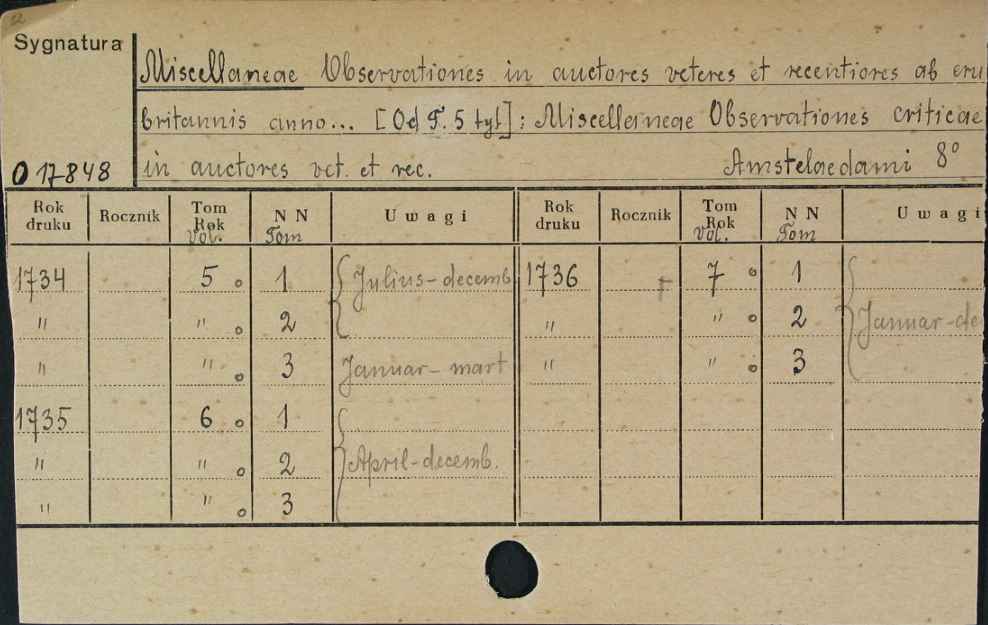 Sygnatura
Miscellaneae Observationes in auctores veteres et recentiores ab eru
britannis anno... [Od T. 5 tyt]: Miscellaneae Observationes criticae
O 17848 in auctores vet. et rec. Amstelaedami 8°
Rok druku Rocznik Tom Rok Vol. NN Tom Uwagi Rok druku Rocznik Tom Rok Vol. NN Tom Uwagi
1734 5 o 1 { Julius-decemb 1736 7 o 1
" " o 2 " " o 2 } Januar-de
" " o 3 Januar-mart " " o 3
1735 6 o 1
" " o 2 } April-decemb.
" " o 3